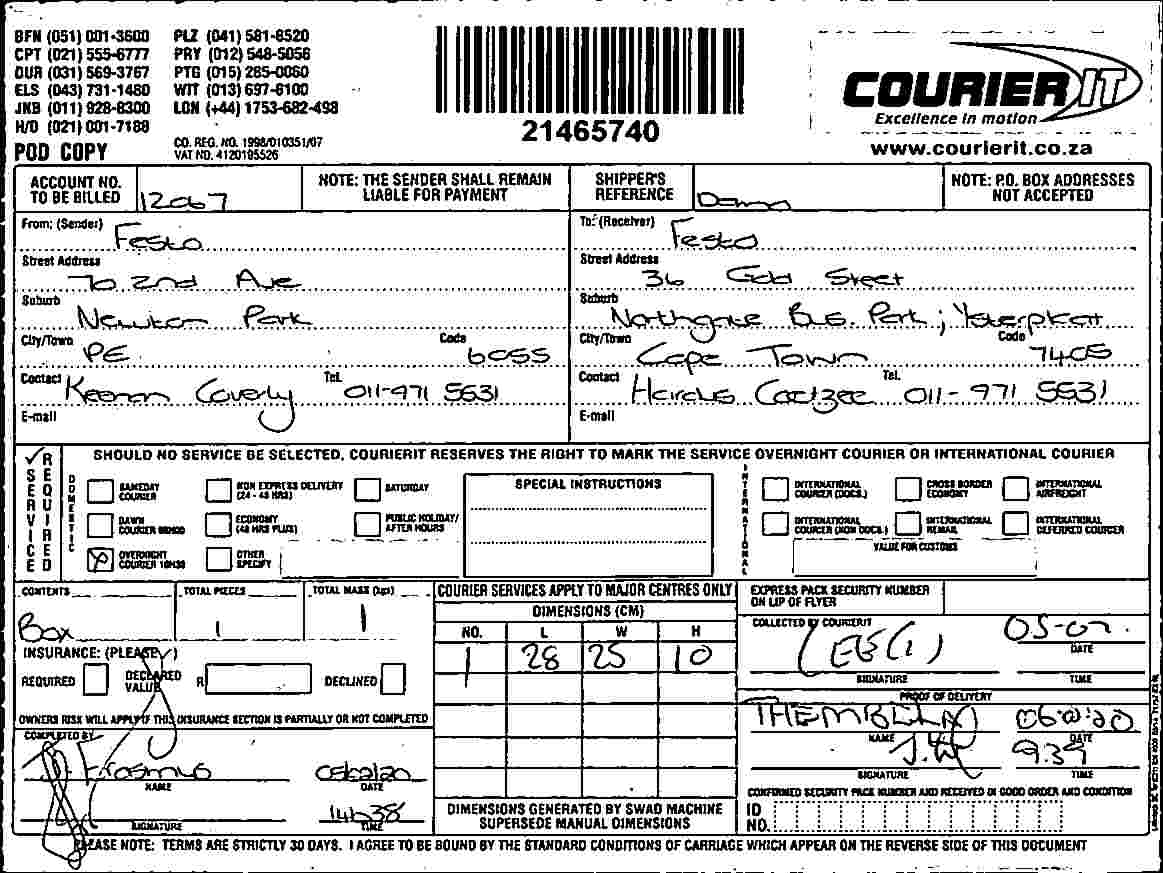 BFN (051) 001-3600 PLZ (041) 581-8520
CPT (021) 555-6777 PRY (012) 548-5056
DUR (031) 569-3767 PTG (015) 285-0060
ELS (043) 731-1480 WIT (013) 697-6100
JNB (011) 928-8300 LON (+44) 1753-682-498
H/D (021) 001-7188
POD COPY
CO. REG. NO. 1998/010351/07
VAT NO. 4120195526
21465740
COURIER IT
Excellence in motion
www.courierit.co.za
ACCOUNT NO. TO BE BILLED 12067
NOTE: THE SENDER SHALL REMAIN LIABLE FOR PAYMENT
SHIPPER'S REFERENCE
NOTE: P.O. BOX ADDRESSES NOT ACCEPTED
From: (Sender) Festo
Street Address 70 2nd Ave
Suburb Newton Park
City/Town PE Code 6055
Contact Keenan Coverly Tel. 011-971 5531
E-mail
To: (Receiver) Festo
Street Address 36 Gold Street
Suburb Northgate Bus. Park; Ysterplaat
City/Town Cape Town Code 7405
Contact Hardus Coetzee Tel. 011-971 5531
E-mail
SERVICE REQUIRED
SHOULD NO SERVICE BE SELECTED, COURIERIT RESERVES THE RIGHT TO MARK THE SERVICE OVERNIGHT COURIER OR INTERNATIONAL COURIER
DOMESTIC
SAMEDAY COURIER
NON EXPRESS DELIVERY (24 - 48 HRS)
SATURDAY
DAWN COURIER
ECONOMY (48 HRS PLUS)
PUBLIC HOLIDAY/ AFTER HOURS
OVERNIGHT COURIER 10H30
OTHER SPECIFY
SPECIAL INSTRUCTIONS
INTERNATIONAL
INTERNATIONAL COURIER (DOCS.)
CROSS BORDER ECONOMY
INTERNATIONAL AIRFREIGHT
INTERNATIONAL COURIER (NON DOCS.)
INTERNATIONAL REMAIL
INTERNATIONAL DEFERRED COURIER
VALUE FOR CUSTOMS
CONTENTS Box
TOTAL PIECES 1
TOTAL MASS (kgs) 1
INSURANCE: (PLEASE ✓)
REQUIRED DECLARED VALUE R DECLINED
OWNERS RISK WILL APPLY IF THIS INSURANCE SECTION IS PARTIALLY OR NOT COMPLETED
COMPLETED BY
Erasmus
NAME DATE
14h38
SIGNATURE TIME
COURIER SERVICES APPLY TO MAJOR CENTRES ONLY
DIMENSIONS (CM)
NO. L W H
1 28 25 10
DIMENSIONS GENERATED BY SWAD MACHINE SUPERSEDE MANUAL DIMENSIONS
EXPRESS PACK SECURITY NUMBER ON LIP OF FLYER
COLLECTED BY COURIERIT
05-02.
DATE
SIGNATURE TIME
PROOF OF DELIVERY
THEMBELA
NAME DATE
9.39
SIGNATURE TIME
CONFIRMED SECURITY PACK NUMBER AND RECEIVED IN GOOD ORDER AND CONDITION
ID NO.
PLEASE NOTE: TERMS ARE STRICTLY 30 DAYS. I AGREE TO BE BOUND BY THE STANDARD CONDITIONS OF CARRIAGE WHICH APPEAR ON THE REVERSE SIDE OF THIS DOCUMENT